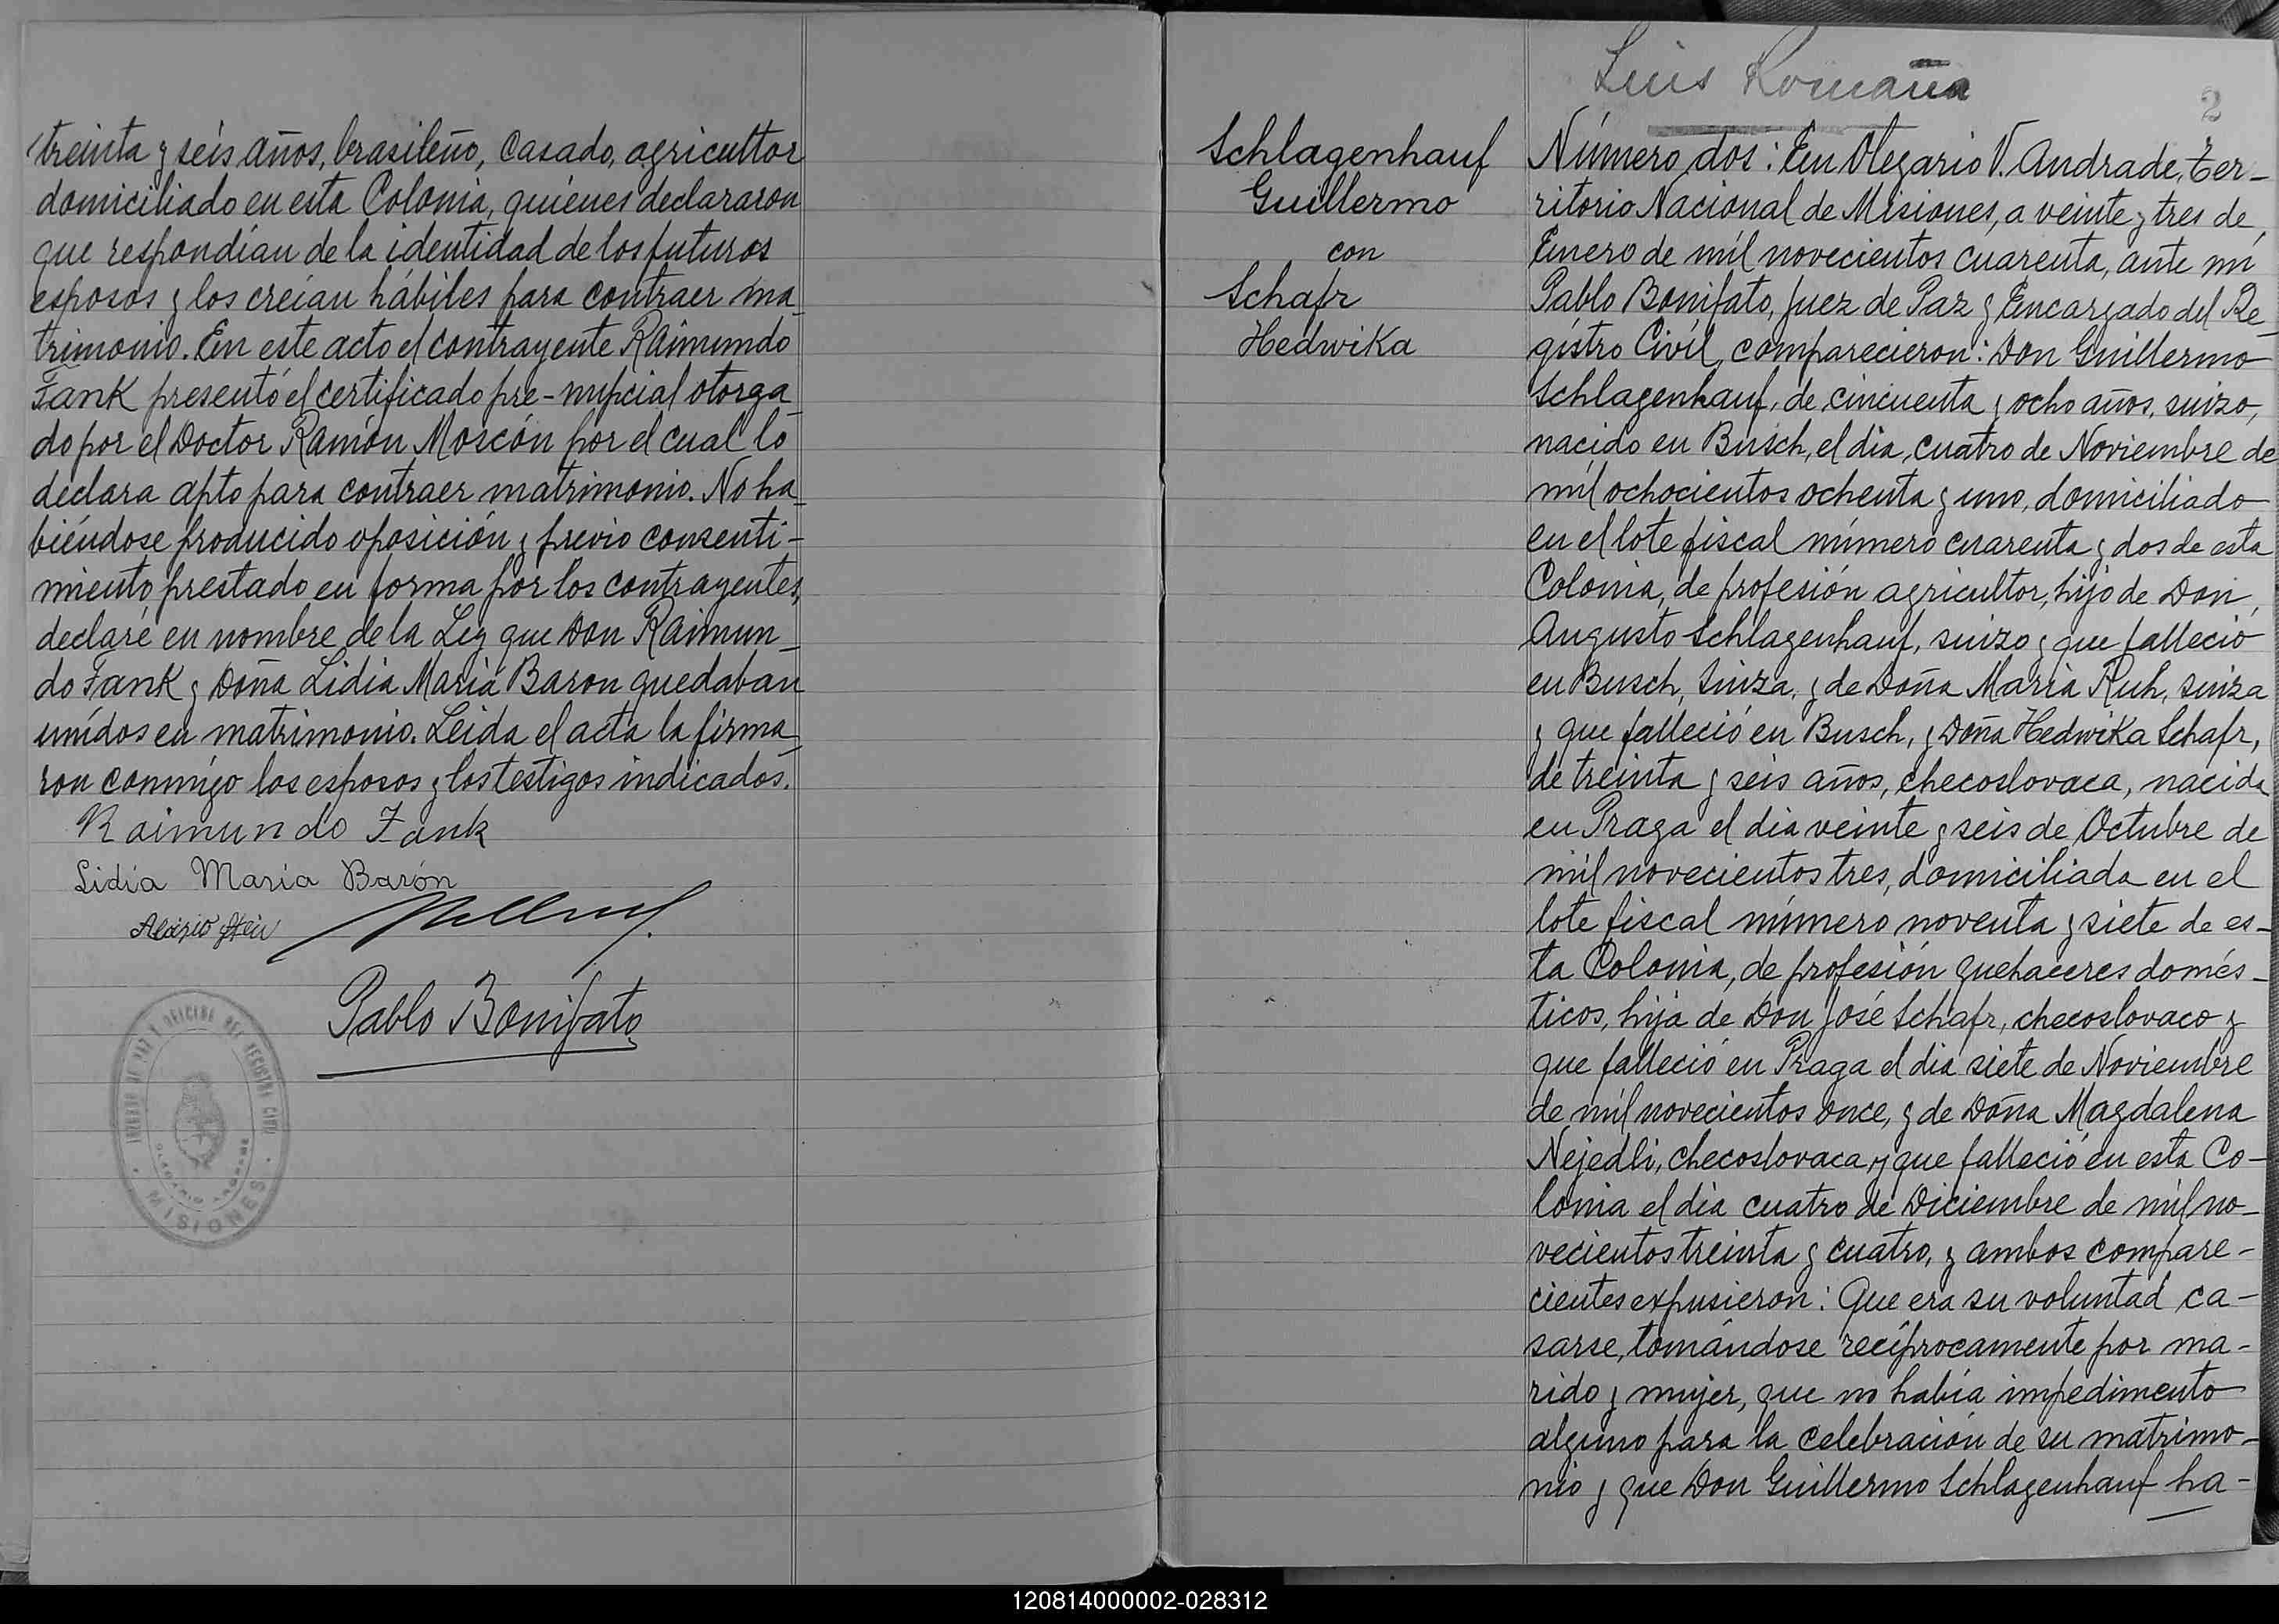 treinta y seis años, brasileño, casado, agricultor
domiciliado en esta Colonia, quiénes declararon
que respondían de la identidad de los futuros
esposos y los creían hábiles para contraer ma_
trimonio. En este acto el contrayente Raimundo
Fank presentó el certificado pre-nupcial otorga_
do por el Doctor Ramón Moscón por el cual lo
declara apto para contraer matrimonio. No ha_
biéndose producido oposición y previo consenti-
miento prestado en forma por los contrayentes,
declaré en nombre de la Ley que Don Raimun_
do Fank y Doña Lidia Maria Baron quedaban
unidos en matrimonio. Leida el acta la firma_
ron conmigo los esposos y los testigos indicados.
Raimundo Fank
Lidia Maria Barón
Pablo Bonifato
MISIONES
Luis Romaña
2
Schlagenhauf
Guillermo
con
Schafr
Hedwika
Número dos: En Olegario V. Andrade, Ter-
ritorio Nacional de Misiones, a veinte y tres de
Enero de mil novecientos cuarenta, ante mi
Pablo Bonifato, Juez de Paz y Encargado del Re_
gistro Civil, comparecieron: Don Guillermo
Schlagenhauf, de cincuenta y ocho años, suizo,
nacido en Busch, el dia cuatro de Noviembre de
mil ochocientos ochenta y uno, domiciliado
en el lote fiscal número cuarenta y dos de esta
Colonia, de profesión agricultor, hijo de Don
Augusto Schlagenhauf, suizo y que falleció
en Busch, Suiza, y de Doña Maria Ruh, suiza
y que falleció en Busch, y Doña Hedwika Schafr,
de treinta y seis años, checoslovaca, nacida
en Praga el dia veinte y seis de Octubre de
mil novecientos tres, domiciliada en el
lote fiscal número noventa y siete de es-
ta Colonia, de profesión quehaceres domés-
ticos, hija de Don José Schafr, checoslovaco y
que falleció en Praga el dia siete de Noviembre
de mil novecientos once, y de Doña Magdalena
Nejedli, checoslovaca y que falleció en esta Co-
lonia el dia cuatro de Diciembre de mil no-
vecientos treinta y cuatro, y ambos compare-
cientes expusieron: Que era su voluntad ca-
sarse, tomándose recíprocamente por ma-
rido y mujer, que no había impedimento
alguno para la celebración de su matrimo-
nio y que Don Guillermo Schlagenhauf ha-
120814000002-028312